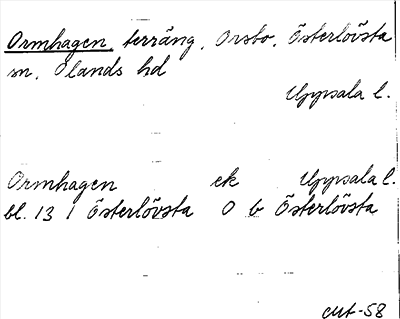 Ormhagen, terräng, Orsbo, Österlövsta
sn, Ölands hd
Uppsala l.
Ormhagen ek Uppsala l.
bl. 13 I Österlövsta O b Österlövsta
-58